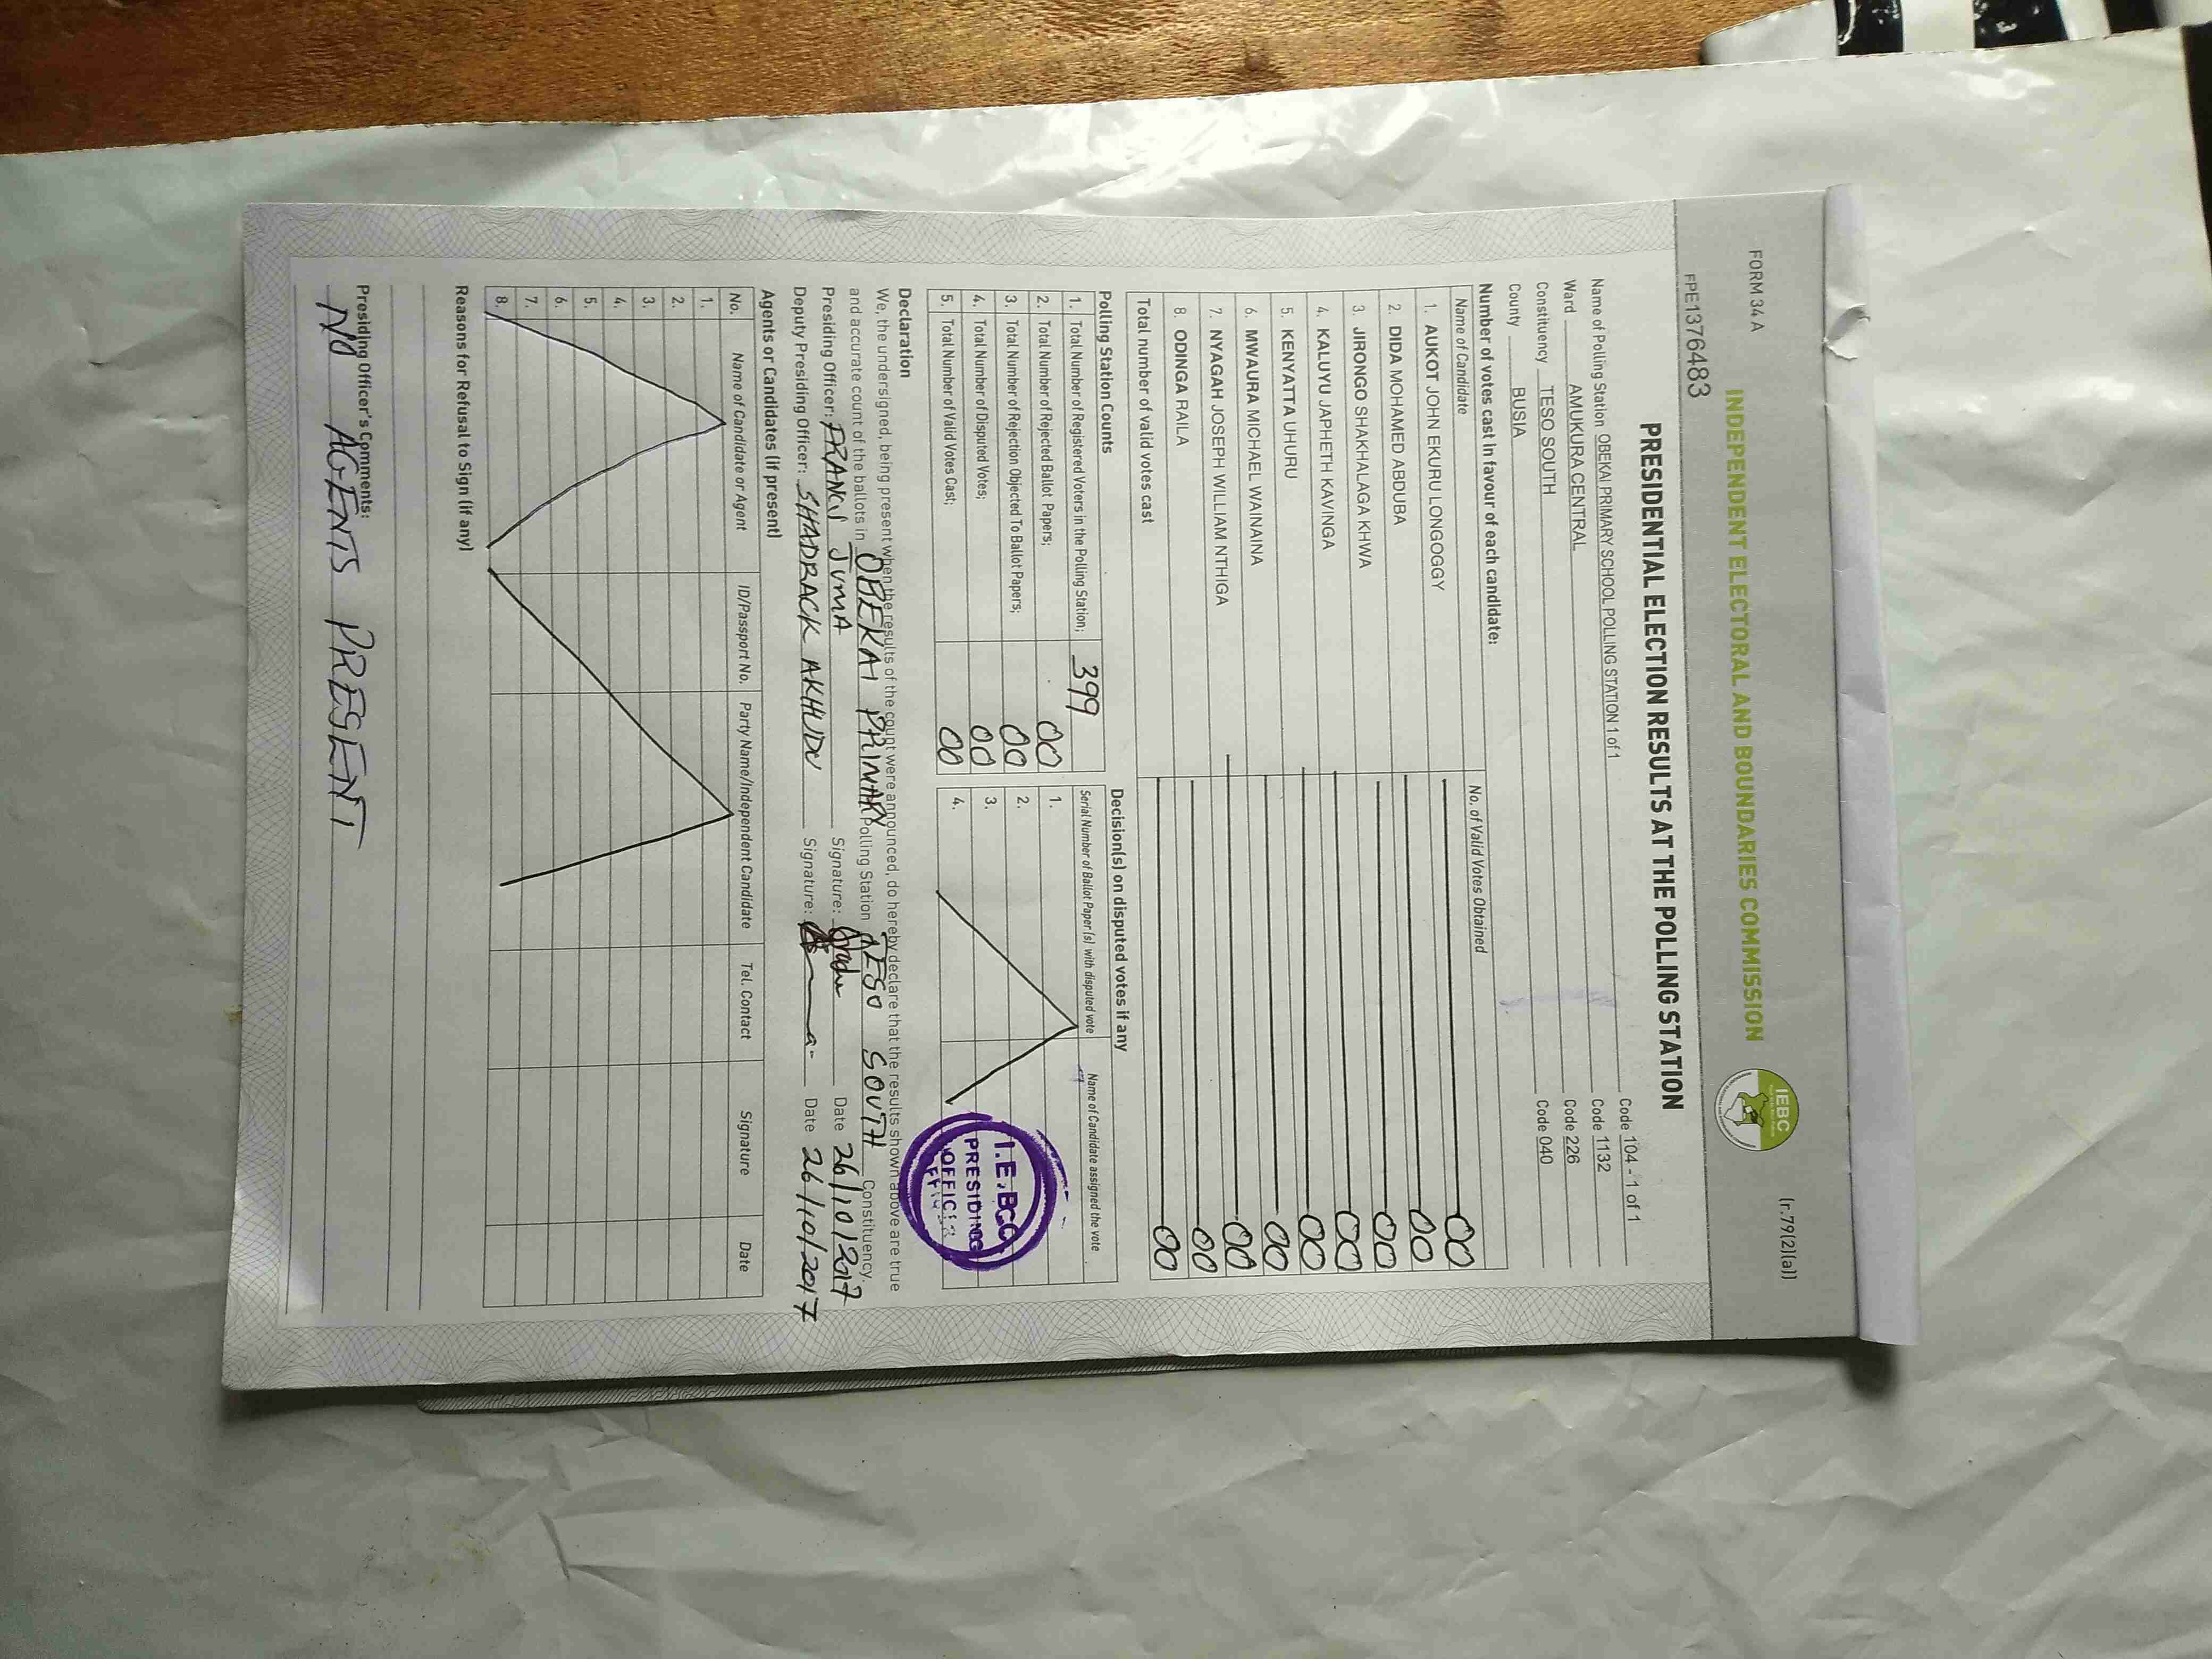 FORM 34 A
(r.79(2)(a))
INDEPENDENT ELECTORAL AND BOUNDARIES COMMISSION
IEBC
FPE1376483
PRESIDENTIAL ELECTION RESULTS AT THE POLLING STATION
Name of Polling Station OBEKAI PRIMARY SCHOOL POLLING STATION 1 of 1 Code 104 - 1 of 1
Ward AMUKURA CENTRAL Code 1132
Constituency TESO SOUTH Code 226
County BUSIA Code 040
Number of votes cast in favour of each candidate:
Name of Candidate No. of Valid Votes Obtained
1. AUKOT JOHN EKURU LONGOGGY 00
2. DIDA MOHAMED ABDUBA 00
3. JIRONGO SHAKHALAGA KHWA 00
4. KALUYU JAPHETH KAVINGA 00
5. KENYATTA UHURU 00
6. MWAURA MICHAEL WAINAINA 00
7. NYAGAH JOSEPH WILLIAM NTHIGA 00
8. ODINGA RAILA 00
Total number of valid votes cast 00
Polling Station Counts
1. Total Number of Registered Voters in the Polling Station; 399
2. Total Number of Rejected Ballot Papers; 00
3. Total Number of Rejection Objected To Ballot Papers; 00
4. Total Number of Disputed Votes; 00
5. Total Number of Valid Votes Cast; 00
Decision(s) on disputed votes if any
Serial Number of Ballot Paper(s) with disputed vote Name of Candidate assigned the vote
1.
2.
3.
4.
I.E.BC
PRESIDING
OFFICER
Declaration
We, the undersigned, being present when the results of the count were announced, do hereby declare that the results shown above are true
and accurate count of the ballots in OBEKAI PRIMARY Polling Station TESO SOUTH Constituency.
Presiding Officer: FRANCIS JUMA Signature: Date 26/10/2017
Deputy Presiding Officer: SHADRACK AKHUDU Signature: Date 26/10/2017
Agents or Candidates (if present)
No. Name of Candidate or Agent ID/Passport No. Party Name/Independent Candidate Tel. Contact Signature Date
1.
2.
3.
4.
5.
6.
7.
8.
Reasons for Refusal to Sign (if any)
Presiding Officer's Comments:
NO AGENTS PRESENT